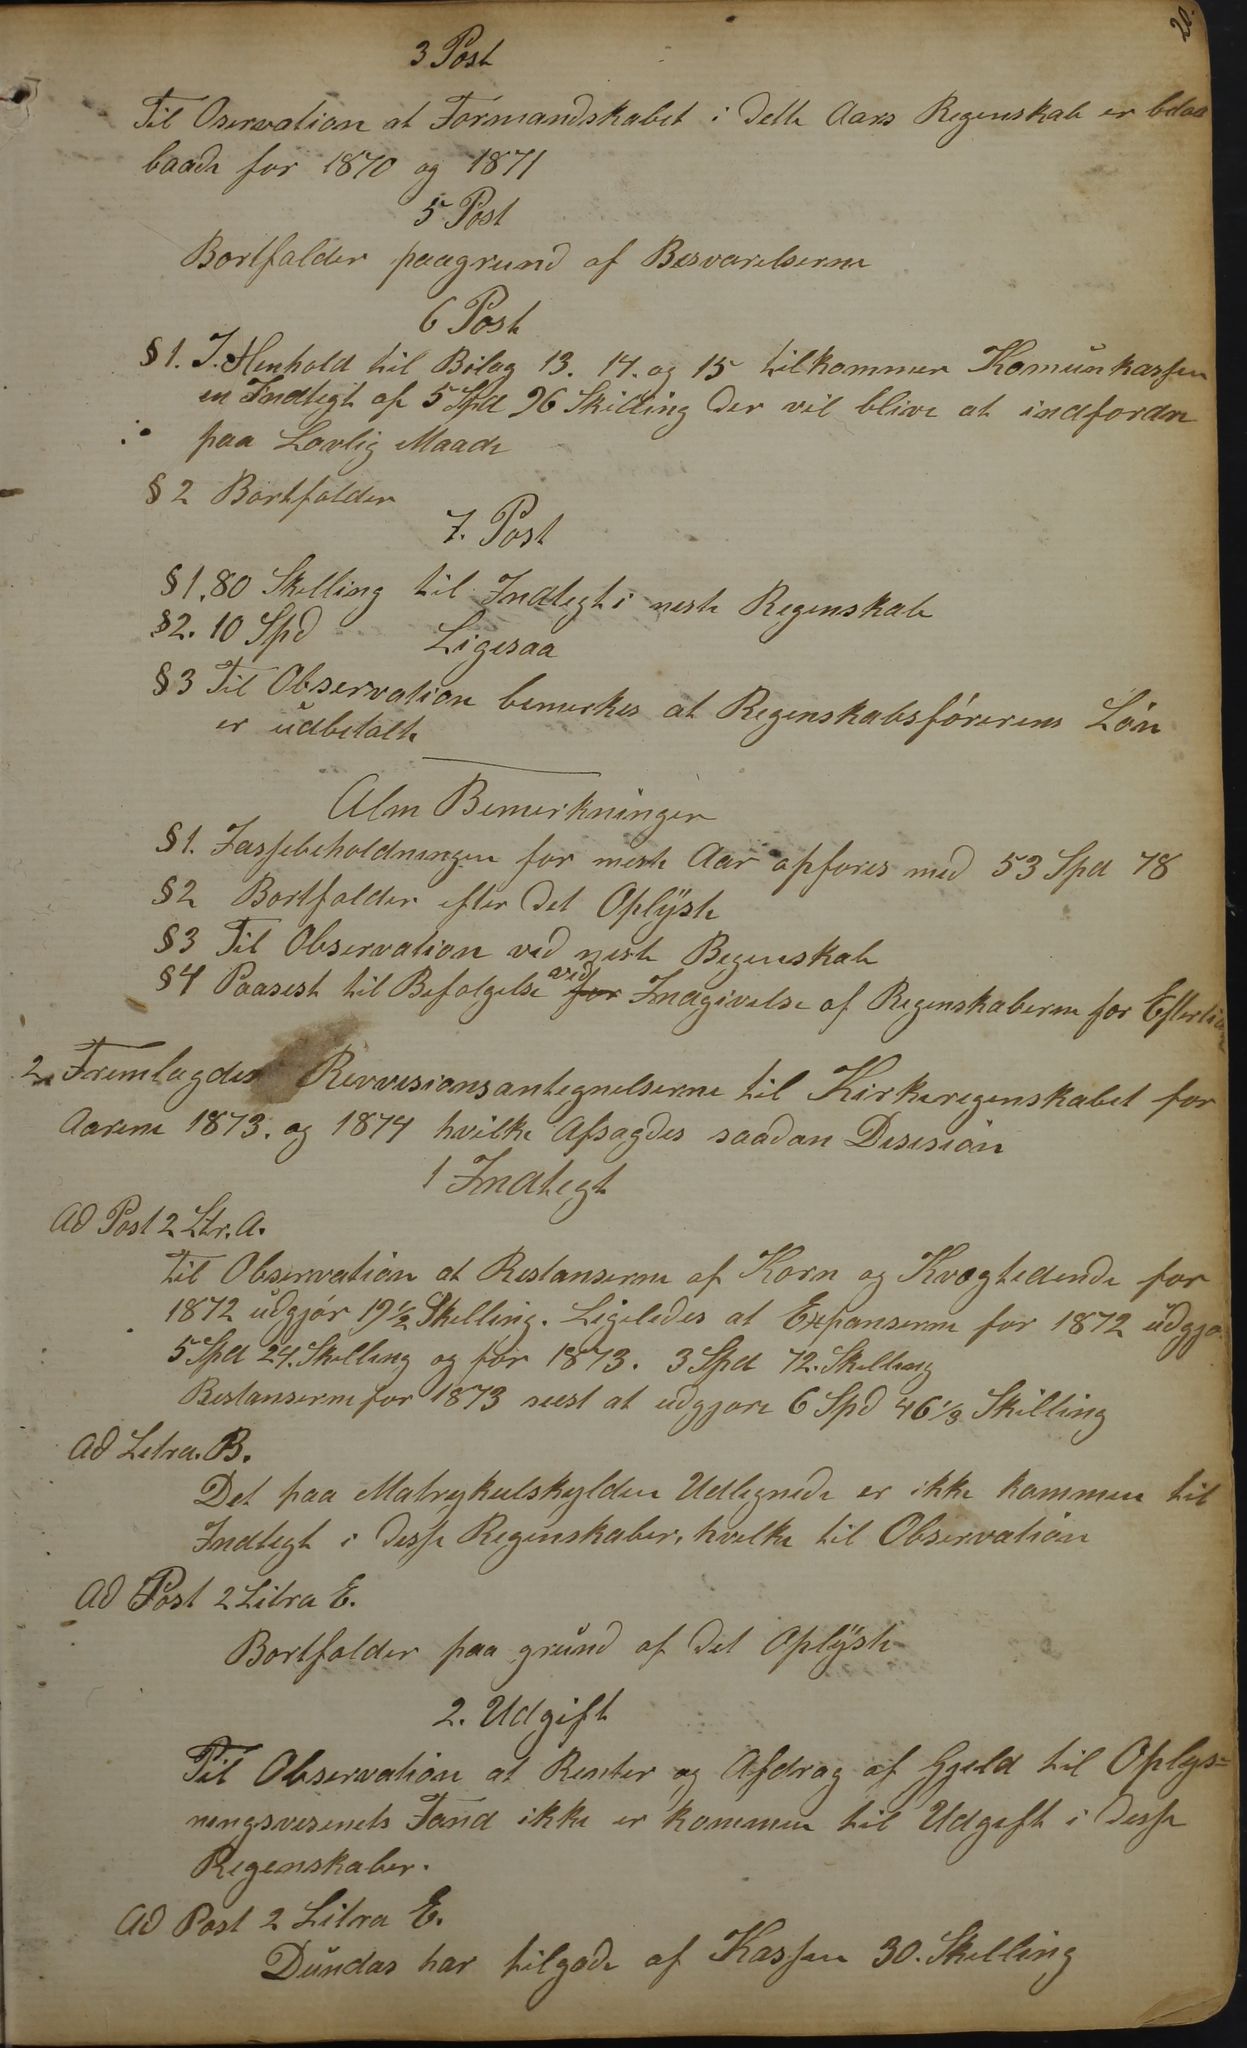 20.
3 Post
Til Oservation at Formandskabet i dette Aars Regenskab er
baade for 1870 og 1871
5 Post
Bortfalder paagrund af Besvarelserne
6 Post
§ 1. I. Henhold til Bilag 13. 14. og 15 tilkommer Komunkassen
en Indtegt af 5 Spd 96 Skilling der vil blive at indfordre
paa Lovlig Maade
§ 2 Bortfalder
7. Post
§ 1. 80 Skelling til Indtegt i neste Regenskab
§ 2. 10 Spd Ligesaa
§ 3 Til Observation bemerkes at Regenskabsförerens Lön
er udbetalt.
Alm Bemerkninger
§ 1. Kassebeholdningen for neste Aar opföres med 53 Spd 78
§ 2 Bortfalder efter det Oplÿste
§ 3 Til Observation ved neste Regenskab
§ 4 Paasest til Befølgelse ved for Indgivelse af Regenskaberne for Eftertiden
2. Fremlagdes Revvisionsantegnelserne til Kirkeregenskabet for
Aarene 1873. og 1874 hvilke Afsagdes saadan Desision
1 Indtegt
Ad Post 2 Ltr. A.
Til Observation at Restanserne af Korn og Kvægtiende for
1872 udgjör 19 1/2 Skelling. Ligeledes at Expanserne for 1872 udgjö
5 Spd 24. Skelling og for 1873. 3 Spd 72. Skelling
Restanserne for 1873 seest at udgjøre 6 Spd 46 1/3 Skilling
Ad Letra. B.
Det paa Matrykulskylden Udlegnede er ikke kommen til
Indtegt i desse Regenskaber, hvelke til Observation
Ad Post 2 Litra E.
Bortfalder paa grund af det Oplÿste
2. Udgift
Til Observation at Renter og Afdrag af Gjeld til Oplys=
ningsvesenets Fond ikke er kommen til Udgift i desse
Regenskaber.
Ad Post 2 Litra E.
Dundas har tilgode af Kassen 30. Skelling